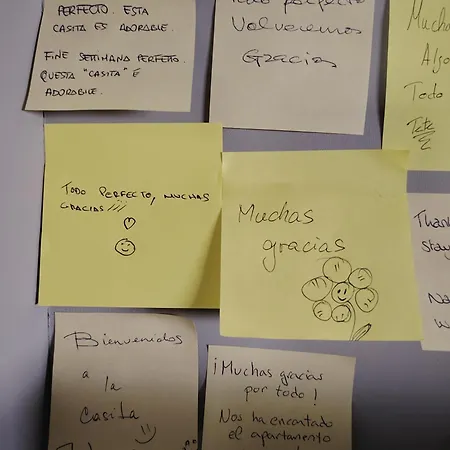 PERFECTO. ESTA
CASITA ES ADORABLE.
FINE SETTIMANA PERFETTO.
QUESTA "CASITA" É
ADORABILE.
Todo perfecto
Volveremos
Gracias
Muchas
Algo
Todo
TODO PERFECTO, MUCHAS
GRACIAS!!!
Muchas
gracias
Thank
stay
Bienvenidos
a
la
Casita
¡Muchas gracias
por todo!
Nos ha encantado
el apartamento